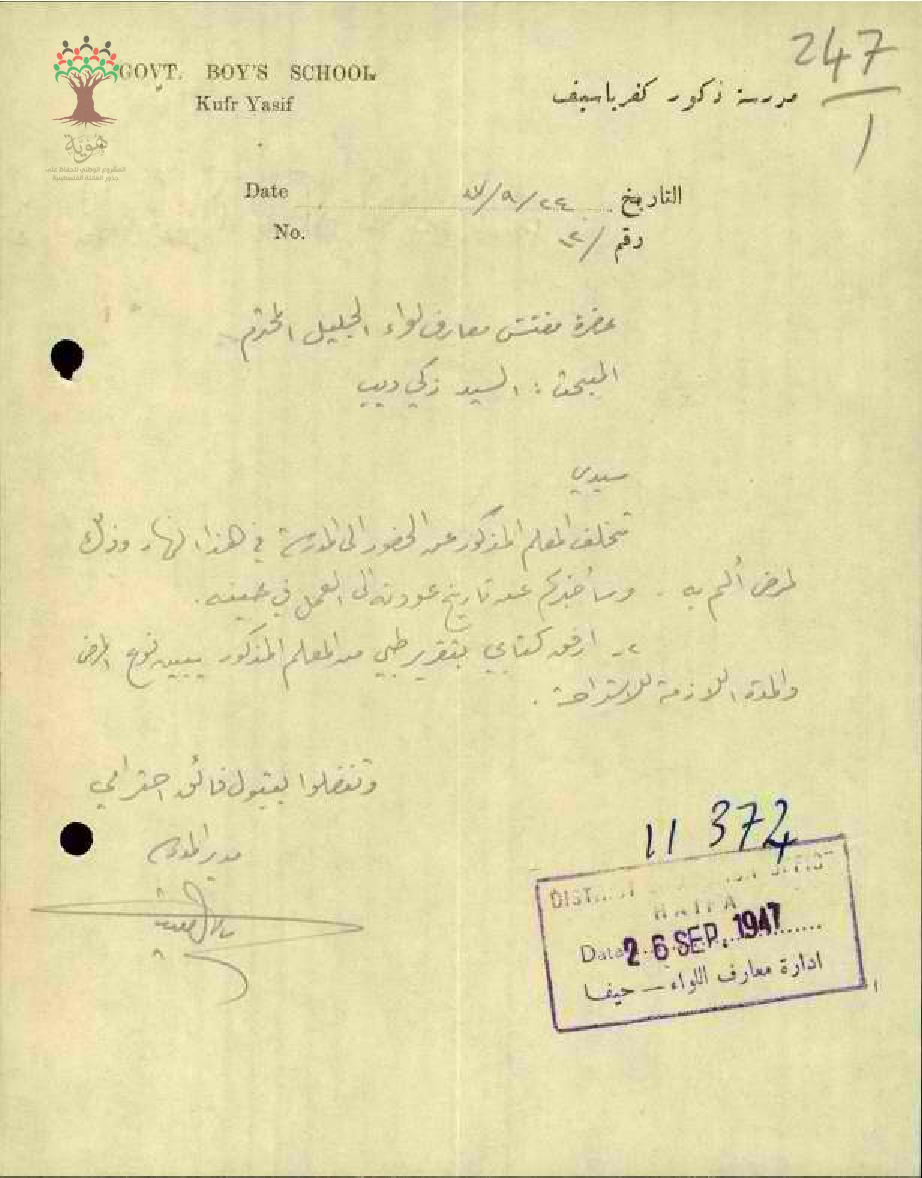 247
1
GOVT. BOY'S SCHOOL
Kufr Yasif
مدرسة ذكور كفرياسيف
هوية
المشروع الوطني للحفاظ على
جذور العائلة الفلسطينية
Date ٢٤/٩/٤٧ التاريخ
No. رقم /
حضرة مفتش معارف لواء الجليل المحترم
المبحث : السيد زكي ديب
سيدي
تخلف المعلم المذكور عن الحضور الى المدرسة في هذا النهار وذلك
لمرض ألم به . وسأخبركم عن تاريخ عودته الى العمل في حينه .
٢- ارفق كتابي بتقرير طبي من المعلم المذكور يبين نوع المرض
والمدة اللازمة للاستراحة .
وتفضلوا بقبول فائق احترامي
مدير المدرسة
11 372
DISTRICT EDUCATION OFFICE
HAIFA
Date 26 SEP. 1947
ادارة معارف اللواء — حيفا